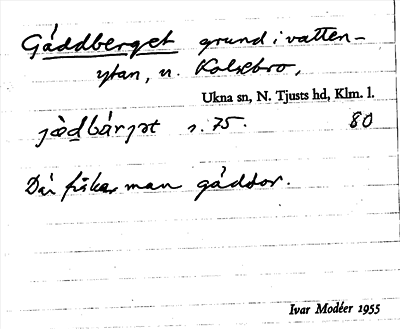 Gäddberget grund i vatten-
ytan, n. Kolsebro,
Ukna sn, N. Tjusts hd, Klm. l.
jὲdbárjət s. 75. 80
Där fiskar man gäddor.
Ivar Modéer 1955